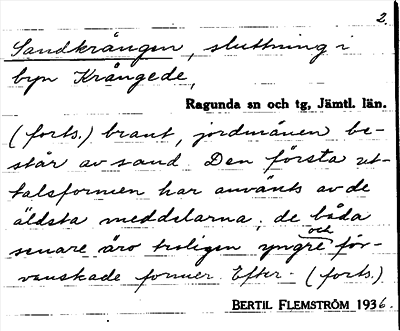 2.
Sandkrången, sluttning i
byn Krångede,
Ragunda sn och tg, Jämtl. län.
(forts.) brant, jordmånen be-
står av sand. Den första ut-
talsformen har använts av de
äldsta meddelarna; de båda
senare äro troligen yngre och för-
svenskade former. Efter- (forts.)
BERTIL FLEMSTRÖM 1936.